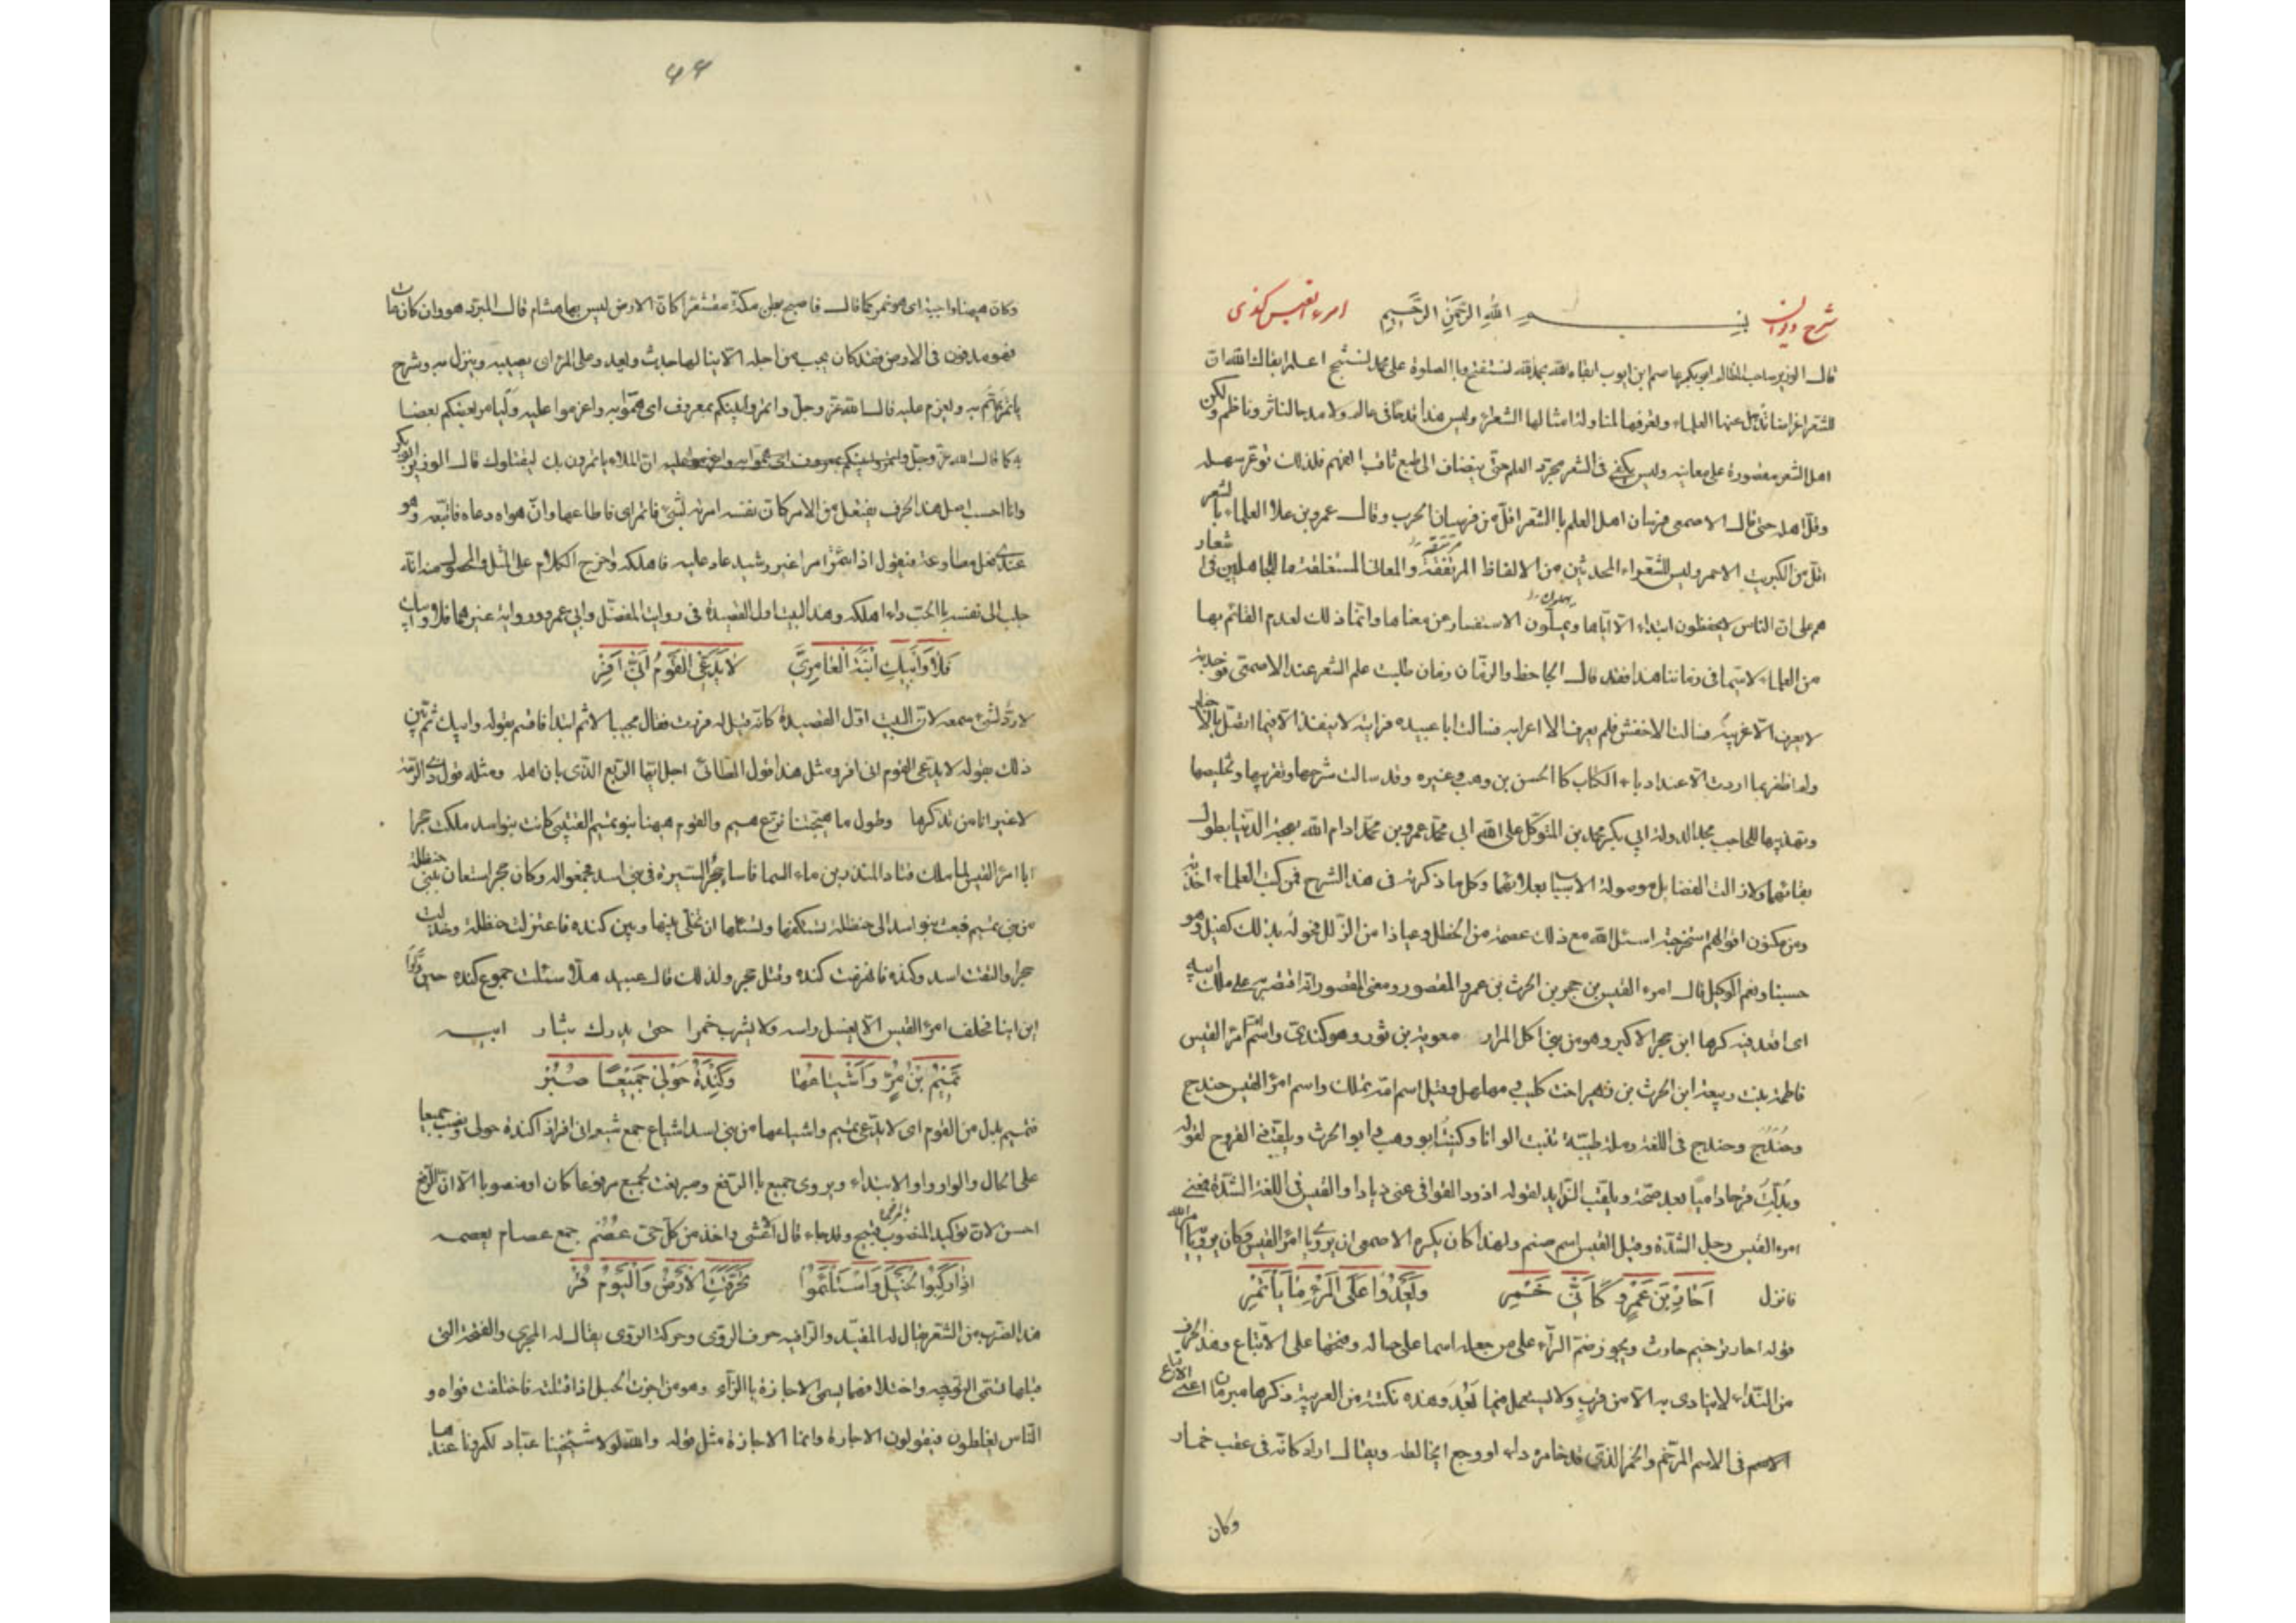 شرح ديوان بسم الله الرحمن الرحيم امرء القيس كندى
قال الوزير صاحب المظالم ابو بكر عاصم ابن ايوب ابقاه الله بحمد الله نستفتح وبا الصلوة على محمد نستنجح اعلم ابقاك الله ان
للشعر اغراضا تذهل عنها العلماء وتعرفها لمناولة امثالها الشعراء وليس هذا قدحا فى عالم ولا مدحا لناثر وناظم ولكن
اهل الشعر مقصورة على معانيه وليس يكفى فى الشعر مجرد العلم حتى ينضاف الى طبع ثاقب الفهم فلذلك توعر سهله
وقل اهله حتى قال الاصمعى فرسان اهل العلم با الشعر اقل من فرسان الحرب وقال عمرو بن علا العلماء با لشعر
اقل من الكبريت الاحمر وليس للشعراء المحدثين من الالفاظ المرتفقة والمعانى المستغلقة ما للجاهلين فى شعار
هم على ان الناس يحفظون ابتداء الا اياها ويملون الاستفسار عن معناها وانما ذلك لعدم القائم بها
من العلماء لاسيما فى زماننا هذا فقد قال الجاحظ والزمان زمان طلبت علم الشعر عند الاصمعى فوجدته
لا يعرف الا غريبه فسالت الاخفش فلم يعرف الا اعرابه فسالت ابا عبيده فرايته لا ينفذ الا فيما اتصل بالاخبار
ولم اظفر بما اردت الا عند ادباء الكتاب كا الحسن بن وهب وغيره وقد سالت شرحها وتقريبها وتخليصها
وتهذيبها للحاجب مجد الدولة ابي بكر محمد بن المتوكل على الله ابي محمد عمرو بن محمد ادام الله بهجة الدنيا بطول
بقائهما ولا زالت الفضايل موصولة الاسباب بعلائهما وكل ما ذكرته فى هذا الشرح فمن كتب العلماء اخذته
ومن مكنون اقوالهم استخرجته اسئل الله مع ذلك عصمة من الخطل وعياذا من الزلل فحوله بذلك كفيل وهو
حسبنا ونعم الوكيل قال امرء القيس بن حجر بن الحرث بن عمرو المقصور ومعنى المقصور انه اقتصر به على ملك ابيه
اى اقعد فيه كرها ابن حجر الاكبر وهو من بنى اكل المرار معوية بن ثور وهو كندى واسم ام امرء القيس
فاطمة بنت ربيعة ابن الحرث بن زهير اخت كليب مهلهل وقيل اسم امه تملك واسم امرء القيس حندج
وحندج وحندج فى اللغة رملة طيبة تنبت الوانا وكنيته ابو وهب ابو الحرث ويلقب ذى القروح لقوله
وبدلت قرحا داميا بعد صحة ويلقب الذايد لقوله اذود القوافى عنى ذيادا والقيس فى اللغة الشدة فمعنى
امرء القيس رجل الشدة وقيل القيس اسم صنم ولهذا كان يكره الاصمعى ان يروى يا امرء القيس وكان يروى يا امرء الله
فانزل احار بن عمرو كانى خمر ويعدوا على المرء ما ياتمر
قوله احار ترخيم حارث ويجوز ضم الراء على من جعله اسما على حاله وضمها على الاتباع وهذا الحرف
من النداء لا ينادى به الا من قرب ولا يستعمل فيما بعد وهذه نكتة من العربية ذكرها مبرمان اعنى الاتباع
فى الاسم المرخم والخمر الذى قد خامره داء او وجع اى خالطه ويقال اراد كانه فى عقب خمار
وكان
٤٤
وكان هيهنا واجبة اى هو خمر كما قال فاصبح بطن مكة مقشعرا كان الارض ليس بها هشام قال المبرد هو وان كان مات
فهو مدفون فى الارض فقد كان يجب من اجله الا ينالها حديث ويعد وعلى المرء اى يصيبه وينزل به وشرح
ياتمر يهتم به ويعزم عليه قال الله عز وجل واتمروا بينكم بمعروف اى هموا به واعزموا عليه وليامر بعضكم بعضا
به كما قال الله عز وجل ان الملاء ياتمرون بك ليقتلوك قال الوزير ابو بكر
وانا احسب اصل هذا الحرف يفتعل من الامر كان نفسه امرته لشىء فاتمر اى فاطاعها وان هواه دعاه فاتبعه وهو
عندى فعل مطاوعة فيقول اذا ائتمر امرا غير رشيد عاد عليه فاهلكه واخرج الكلام على المثل والمحصول منه انه
جلب الى نفسه با الحب داء اهلكه وهذا البيت اول القصيدة فى رواية المفضل وابى عمرو ورواية غيرهما فلا وابيك
فلا وابيك ابنة العامرى لا يدعى القوم انى افر
لا رد لشىء سمعه لان البيت اول القصيدة كانه قيل له فررت فقال مجيبا لا ثم ابتدا فاقسم بقوله وابيك ثم بين
ذلك بقوله لا يدعى القوم انى افر ومثل هذا قول الطائى اجل ايها الربع الذى بان اهله ومثله قول ذى الرمة
لا غير انا من تذكرها وطول ما هيجتنا نزع هيم والقوم هيهنا بنو تميم القتيبى كانت بنو اسد ملكت حجرا
ابا امرء القيس لما ملك قتاد المنذر بن ماء السما فاساء حجر السيرة فى بنى اسد فجمعوا له وكان حجر استعان ببنى حنظلة
من بنى تميم فبعث بنو اسد الى حنظلة تستكفها وتسئلها ان تخلى بينها وبين كنده فاعتزلت حنظلة وخذلت
حجرا والتقت اسد وكنده فانهزمت كنده وقتل حجر ولذلك قال عبيد هلا سئلت جموع كنده حين ولوا
اين اينا فحلف امرء القيس الا يغسل راسه ولا يشرب خمرا حتى يدرك بثار ابيه
تميم بن مر واشياعها وكندة حولى جميعا صبر
فتميم بدل من القوم اى لا يدعى تميم واشياعها من بنى اسد اشياع جمع شيع انى افر اذا كندة حولى ونصب جميعا
على الحال والواو واو الابتداء ويروى جميع با الرفع وصبر نعت لجميع مرفوعا كان او منصوبا الا ان الرفع
احسن لان توكيد المنصوب بالرفع قبيح وقد جاء قال اعشى واخذ من كل حى عصم جمع عصام يعصمه
اذا ركبوا الخيل واستلأموا تحرقت الارض واليوم قر
هذا الضرب من الشعر يقال له المقيد والراء فيه حرف الروى وحركة الروى يقال له المجرى والفتحة التى
قبلها تسمى التوجيه واختلافهما يسمى الاجازة با الزاء وهو من اجزت الحبل اذا فتلته فاختلفت قواه و
الناس يغلطون فيقولون الاجارة وانما الاجازة مثل قوله والله لولا شيخنا عباد لكمرونا عندها